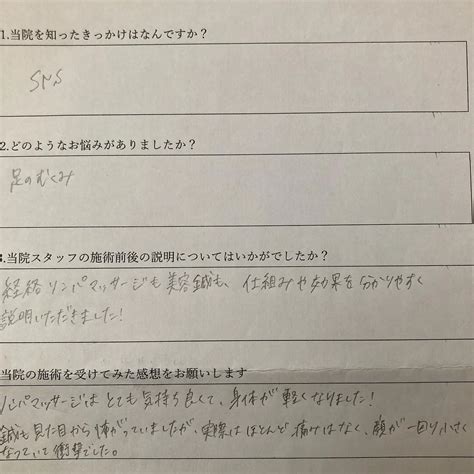 1.当院を知ったきっかけはなんですか？
SNS
2.どのようなお悩みがありましたか？
足のむくみ
3.当院スタッフの施術前後の説明についてはいかがでしたか？
経絡リンパマッサージも美容鍼も、仕組みや効果を分かりやすく
説明いただきました!
当院の施術を受けてみた感想をお願いします
リンパマッサージはとても気持ち良くて、身体が軽くなりました!
鍼も見た目から怖がっていましたが、実際はほとんど痛みはなく、顔が一回り小さく
なっていて衝撃でした。